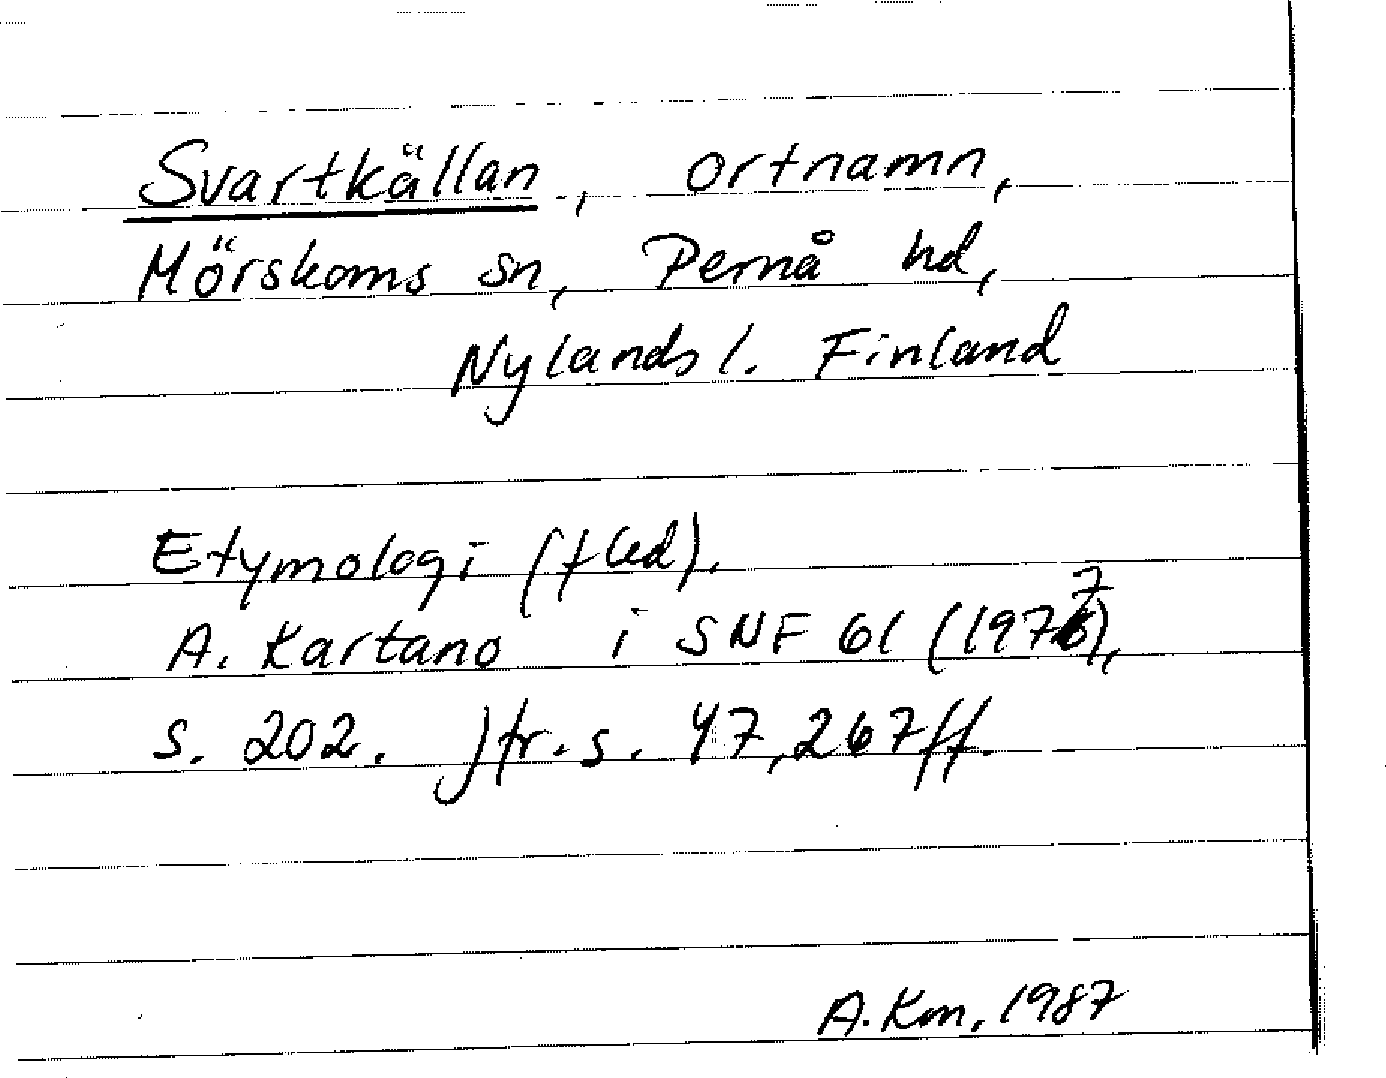 Svartkällan, ortnamn,
Mörskoms sn, Pernå hd,
Nylands l. Finland
Etymologi (fled).
A. Kartano i SNF 61 (1977),
s. 202. Jfr. s. 47, 267ff.
A. Km, 1987